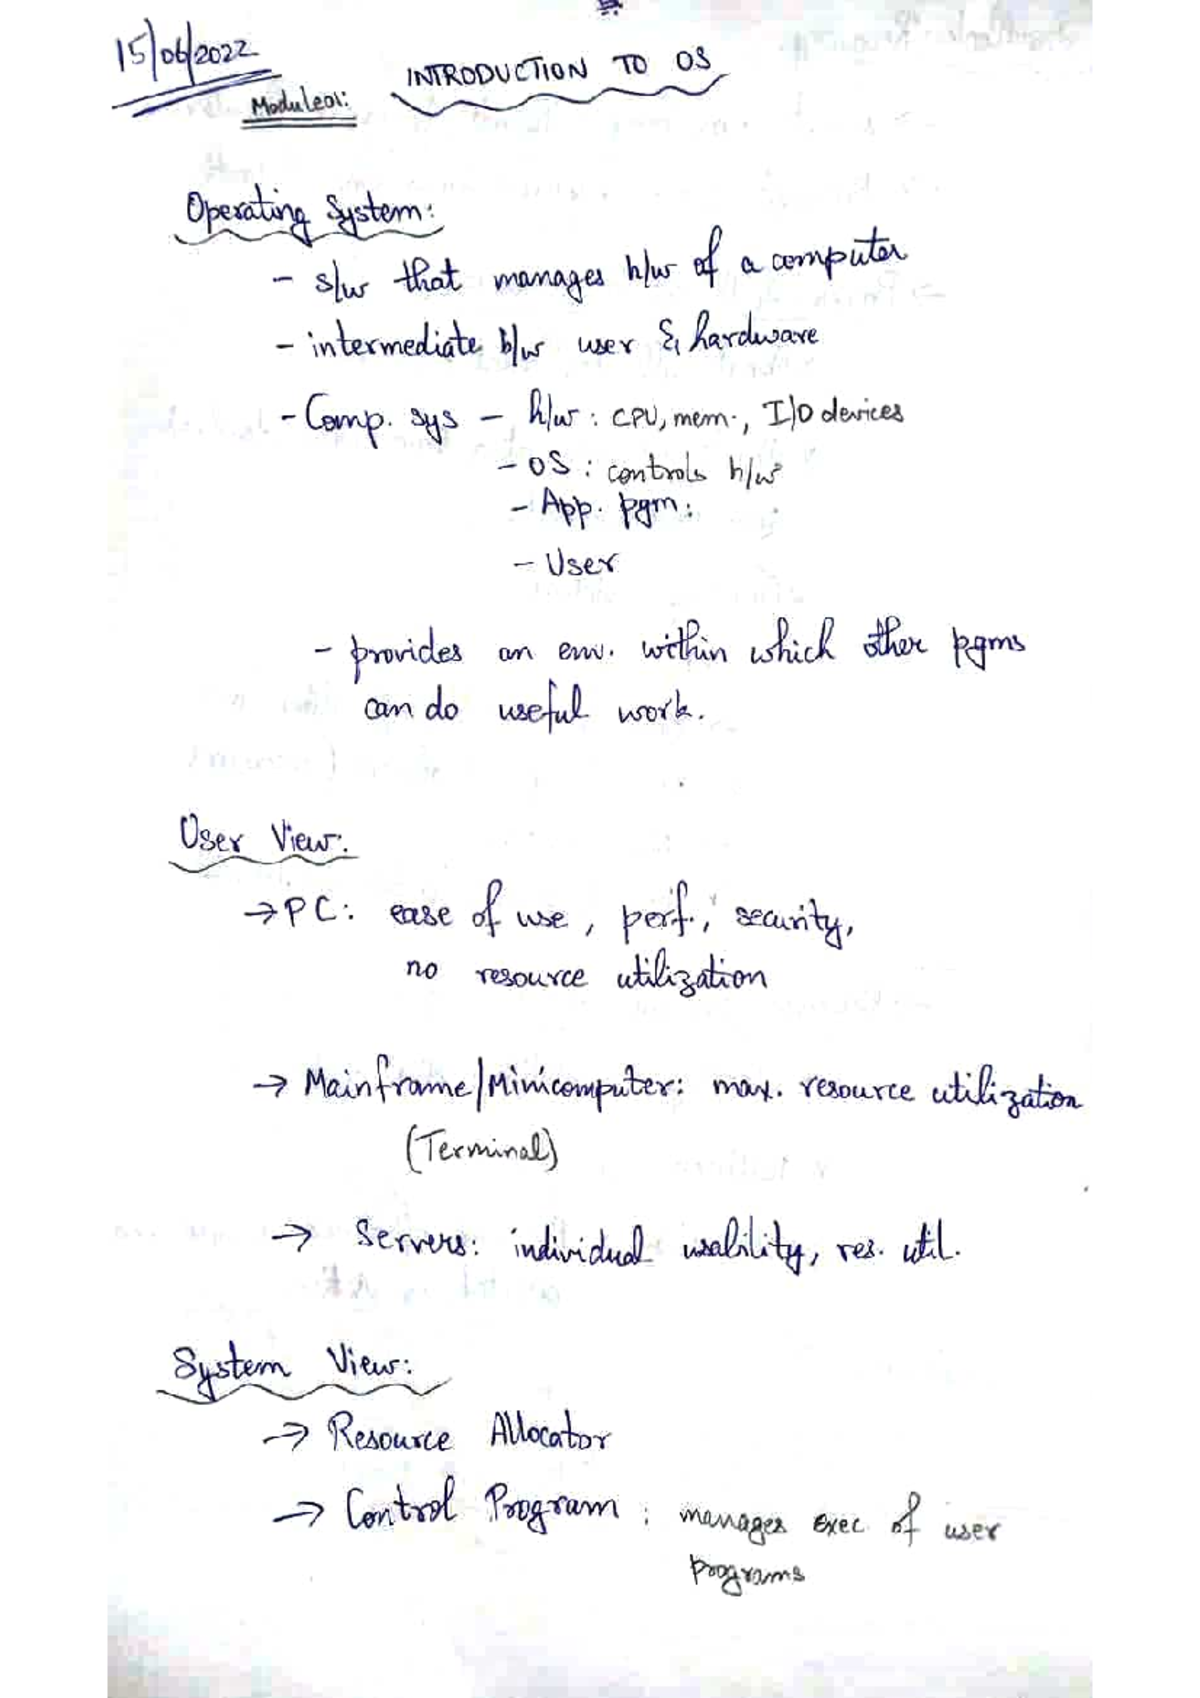 15/06/2022
INTRODUCTION TO OS
Module01:
Operating System:
- s/w that manages h/w of a computer
- intermediate b/w user & hardware
- Comp. sys - h/w : CPU, mem., I/O devices
- OS : controls h/w
- App. pgm:
- User
- provides an env. within which other pgms
can do useful work.
User View:
→ PC: ease of use, perf., security,
no resource utilization
→ Mainframe/Minicomputer: max. resource utilization
(Terminal)
→ Servers: individual usability, res. util.
System View:
→ Resource Allocator
→ Control Program : manages exec of user
programs